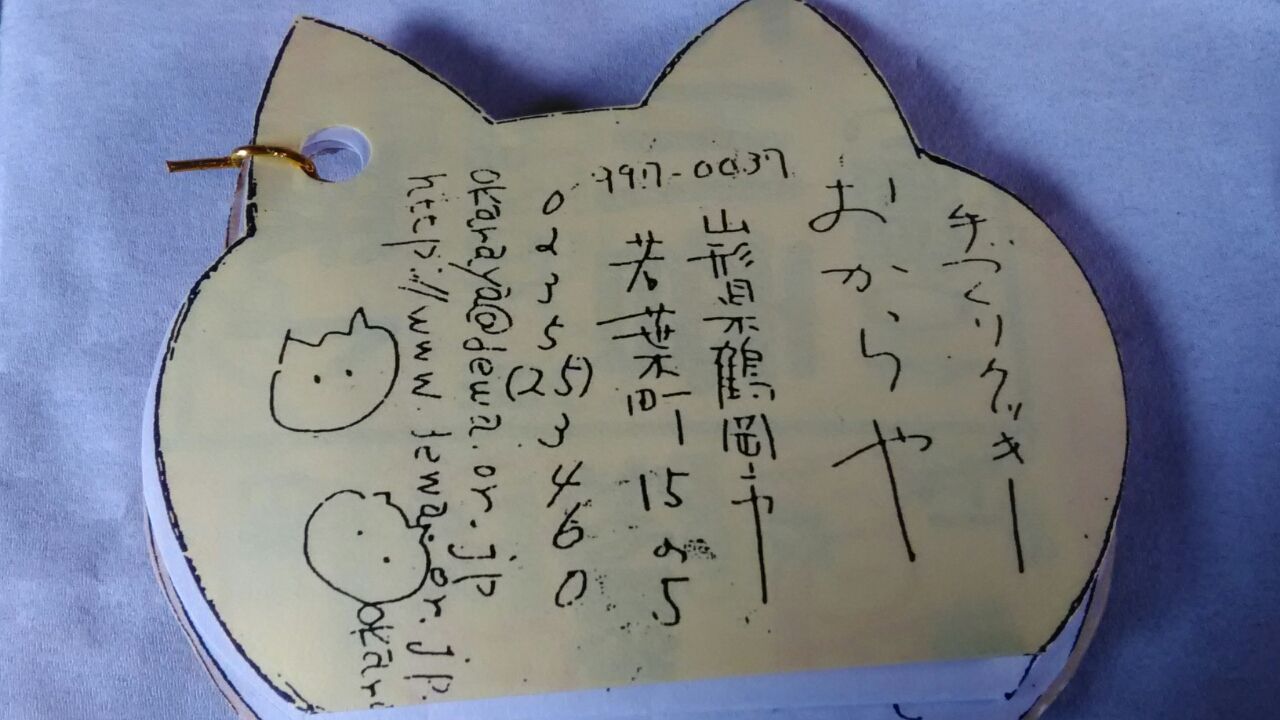 手づくりクッキー
おからや
997-0037
山形県鶴岡市
若葉町15の5
0235(25)3460
okaraya@dewa.or.jp
http://www.dewa.or.jp